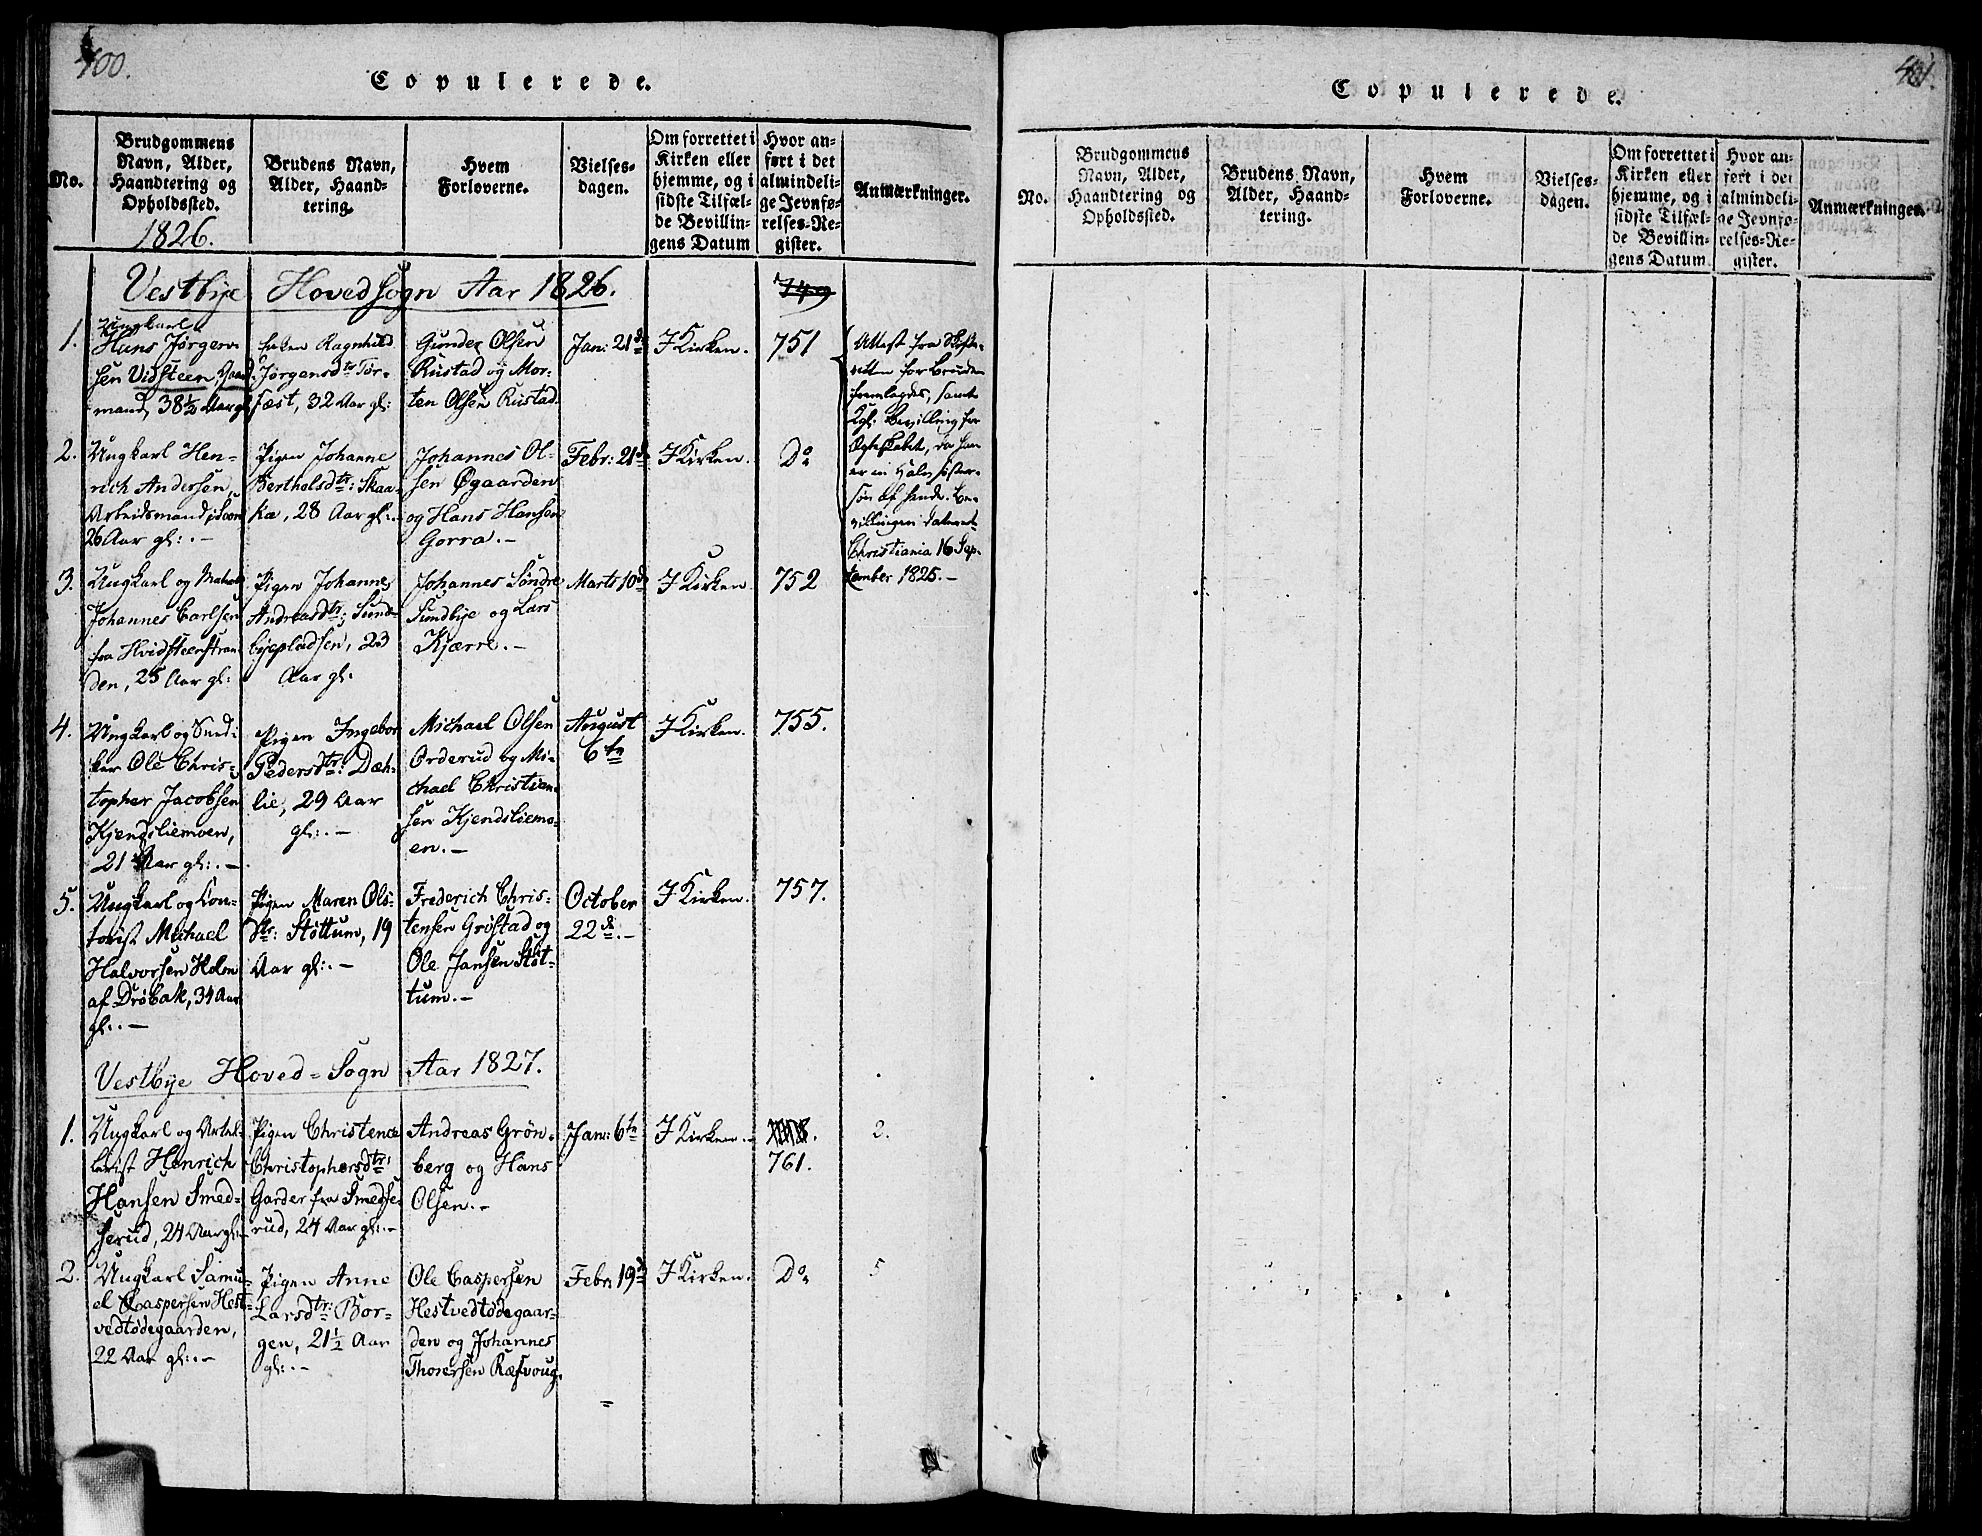 400.
Copulerede.
No.
Brudgommens
Navn, Alder,
Haandtering og
Opholdssted.
1826.
Brudens Navn,
Alder, Haand-
tering.
Hvem
Forloverne.
Vielses-
dagen.
Om forrettet i
Kirken eller
hjemme, og i
sidste Tilfæl-
de Bevillin-
gens Datum
Hvor an-
ført i det
almindeli-
ge Jevnfø-
relses-Re-
gister.
Anmærkninger.
Vestbye Hovedsogn Aar 1826.
749
1.
Ungkarl
Hans Jørgen-
sen Vidsteen, Gaard-
mand, 38½ Aar gl
Ragnhild
Jørgensdtr Tor-
fæst, 32 Aar gl:
Gunder Olsen
Rustad og Mor-
ten Olsen Rustad.
Jan: 21de
I Kirken.
751
Attest fra Skifte-
retten for Bruden
fremlagdes, samt
Kgl: Bevilling for
Ægteskabet, da han
er en Halv Søster-
søn af hende. Be-
villingen dateret
Christiania 16 Sep-
tember 1825.-
2.
Ungkarl Hen-
rich Andersen,
Arbeidsmand,
26 Aar gl:.-
Pigen Johanne
Bertholsdtr: Skaa-
ka, 28 Aar gl:.-
Johannes Ol-
sen Øgaarden
og Hans Hansen
Gorra.-
Febr: 21de
I Kirken.
Do
3.
Ungkarl og Matros
Johannes Carlsen
fra Hvidsteenstran-
den, 25 Aar gl:
Pigen Johanne
Andreasdtr: Sund-
byepladsen, 23
Aar gl:
Johannes Søndre
Sundbye og Lars
Kjærre.-
Marts 10de
I Kirken.
752
4.
Ungkarl og Sned-
ker Ole Chris-
topher Jacobsen
Kjendsliemoen,
21 Aar gl:.-
Pigen Ingebor
Pedersdtr: Dæh-
lie, 29 Aar
gl:.-
Michael Olsen
Orderud og Mi-
chael Christian-
sen Kjendsliemo-
en.-
August
6te
I Kirken.
755.
5.
Ungkarl og Con-
torist Michael
Halvorsen Holm
af Drøbak, 34 Aar
gl:.-
Pigen Maren Ols-
dtr: Støttum, 19
Aar gl:.-
Frederich Chris-
tensen Grøstad og
Ole Jansen Støt-
tum.-
October
22de.-
I Kirken.
757.
Vestbye Hoved-Sogn Aar 1827.
1.
Ungkarl og Artil-
lerist Henrich
Hansen Smed-
serud, 24 Aar gl:-
Pigen Christence
Christophersdtr:
Garder fra Smedse-
rud, 24 Aar gl:.-
Andreas Grøn-
berg og Hans
Olsen.-
Jan: 6te
I Kirken.-
761.
2.
2.
Ungkarl Samu-
el Caspersen Hest-
vedtødegaarden,
22 Aar gl:.-
Pigen Anne
Larsdtr: Bor-
gen, 21½ Aar
gl:.-
Ole Caspersen
Hestvedtødegaar-
den og Johannes
Thorersen Ræfvoug.
Febr: 19de
I Kirken.
Do
5
401.
Copulerede.
No.
Brudgommens
Navn, Alder,
Haandtering og
Opholdssted.
Brudens Navn,
Alder, Haand-
tering.
Hvem
Forloverne.
Vielses-
dagen.
Om forrettet i
Kirken eller
hjemme, og i
sidste Tilfæl-
de Bevillin-
gens Datum
Hvor an-
ført i det
almindeli-
ge Jevnfø-
relses-Re-
gister.
Anmærkninger.